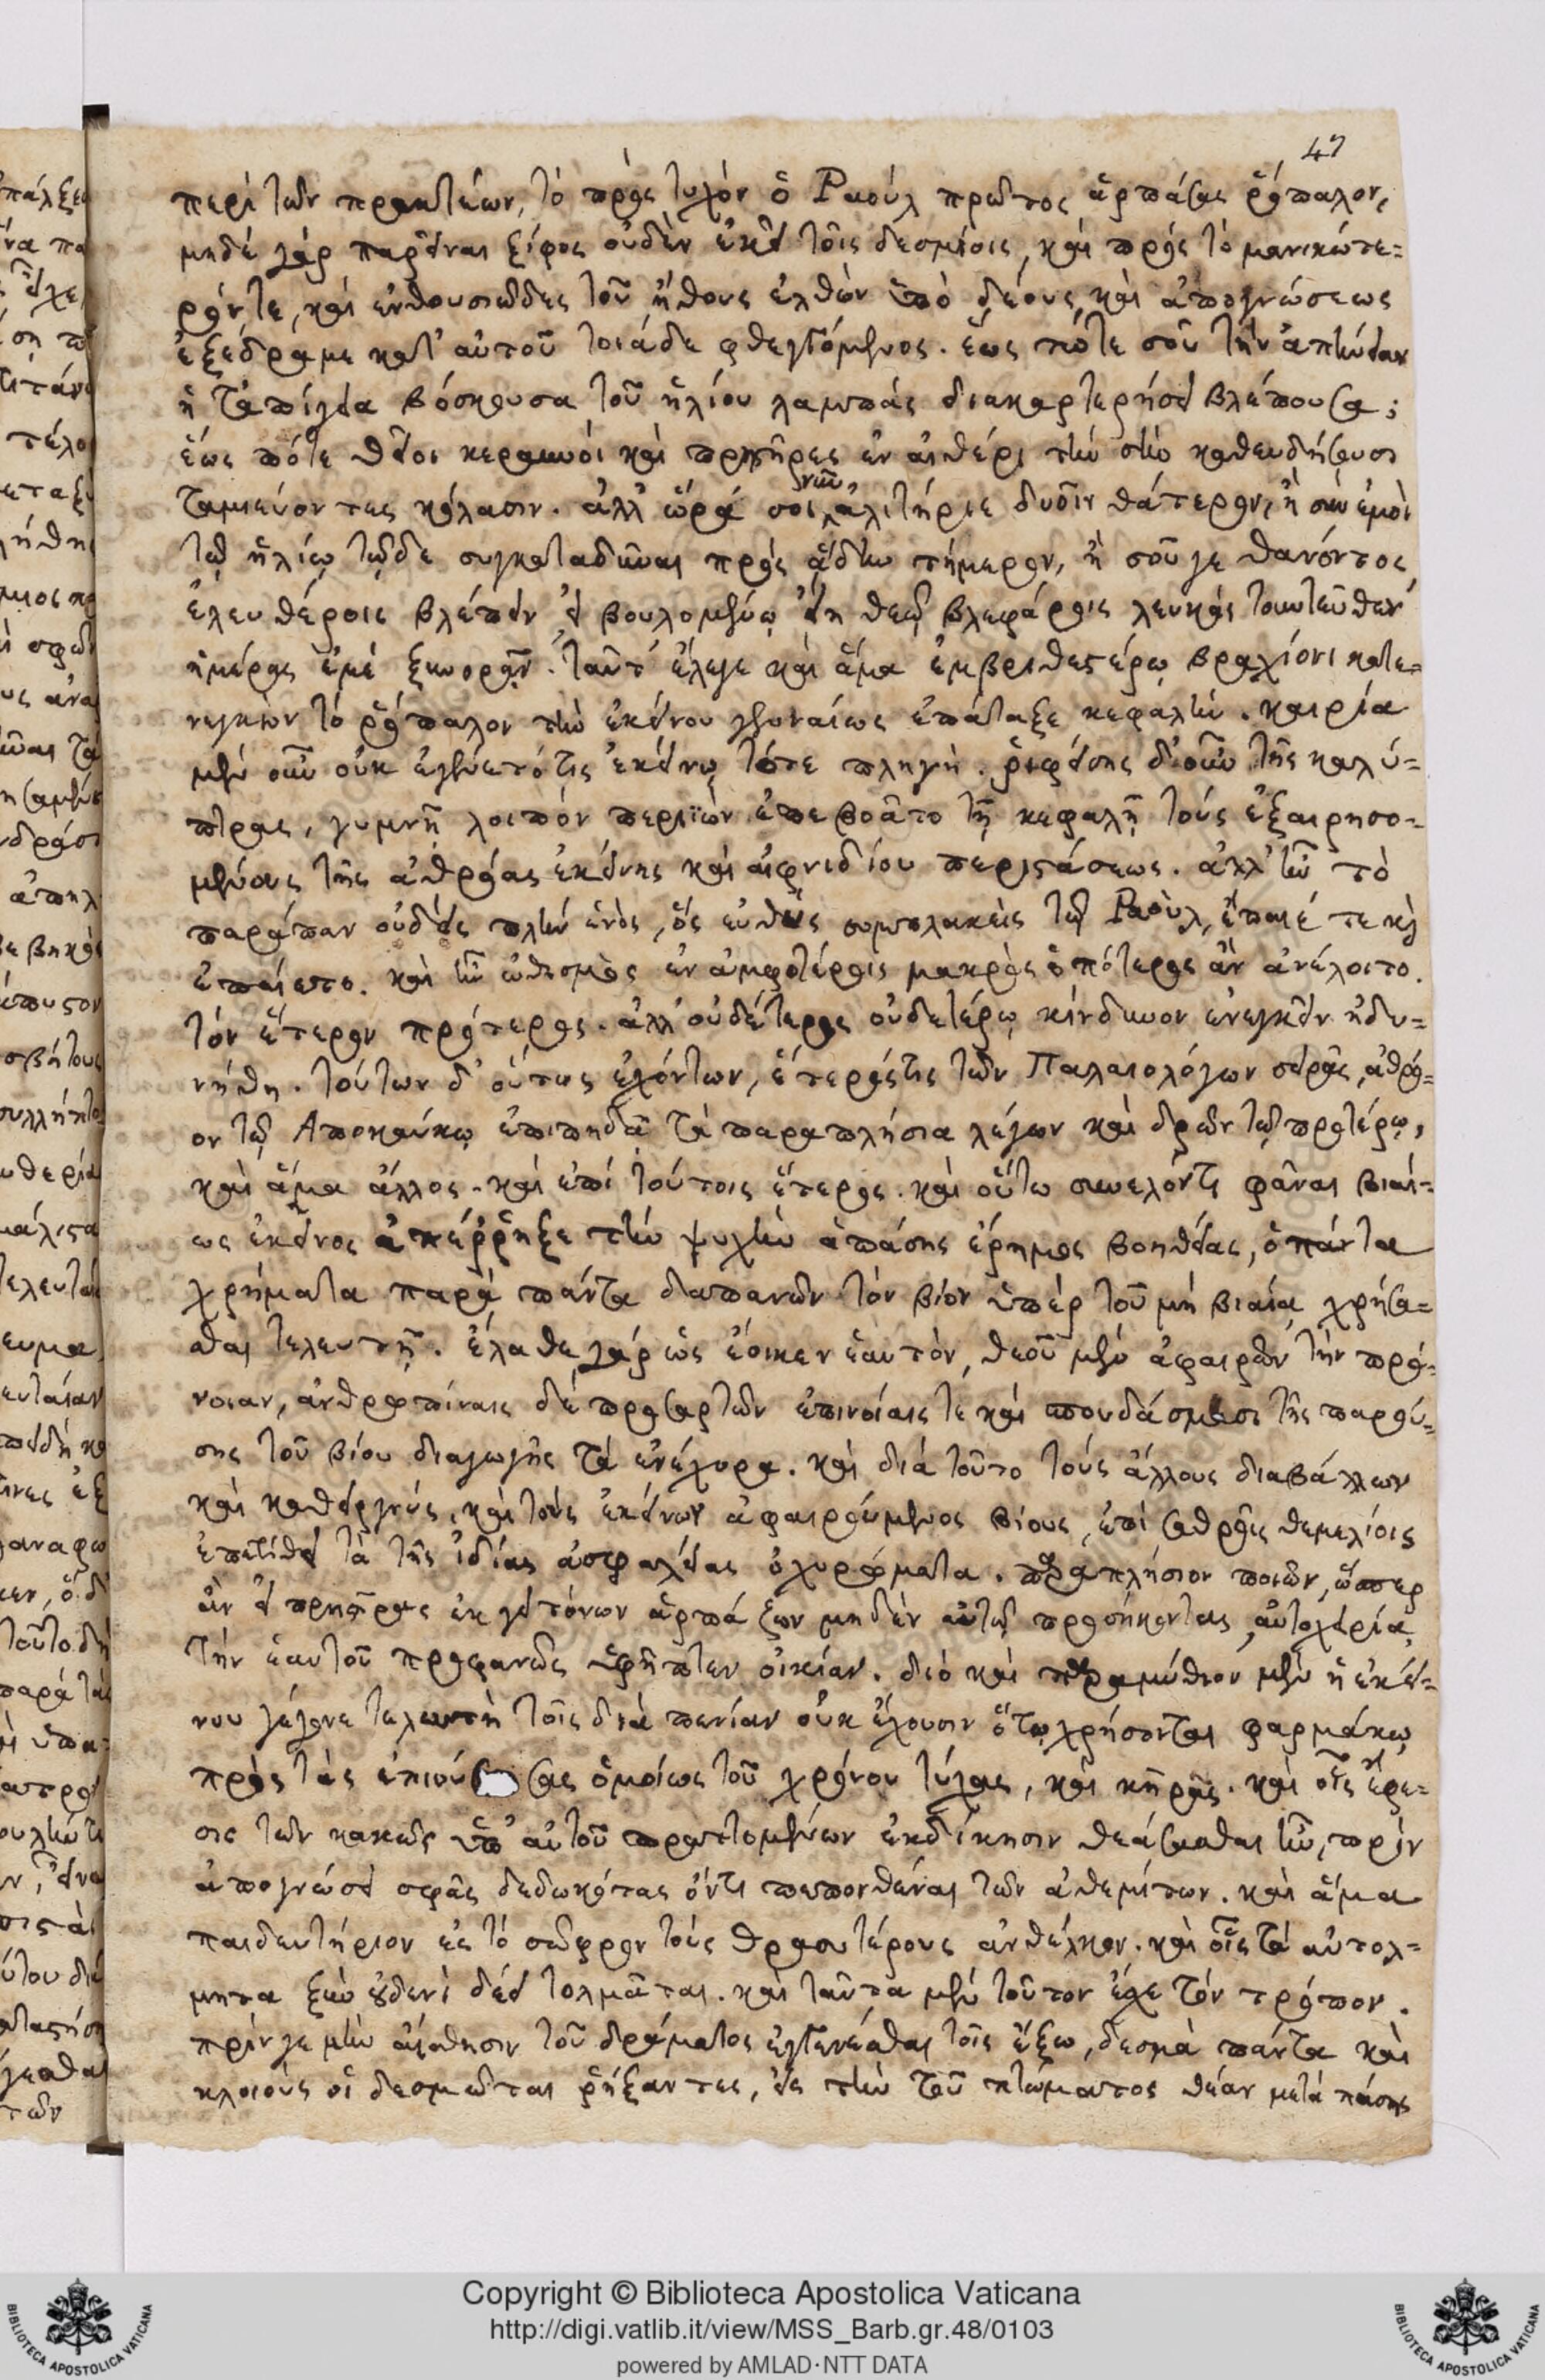 47
περὶ τῶν πρακτέων, τὸ πρὸς τυχὸν ὁ Ῥαοὺλ πρῶτος ἁρπάσας ῥόπαλον,
μηδὲ γὰρ παρεῖναι ξίφος οὐδὲν ἐκεῖ τοῖς δεσμίοις, καὶ πρὸς τὸ μανικώτε=
ρόν τε, καὶ ἐνθουσιῶδες τοῦ ἤθους ἐλθὼν ὑπὸ δέους καὶ ἀπογνώσεως
ἐξέδραμε κατ' αὐτοῦ τοιάδε φθεγγόμενος. ἕως πότε σοῦ τὴν ἀπήνειαν
ἡ τἀπίγεια βόσκουσα τοῦ ἡλίου λαμπὰς διακαρτερήσει βλέπουσα;
ἕως πότε θεῖοι κεραυνοὶ καὶ πρηστῆρες ἐν αἰθέρι τὴν σὴν καθευδήσουσι
ταμιεύοντες κόλασιν. ἀλλ' ὥρά σοι νῦν ἀλιτήριε δυοῖν θάτερον, ἢ σὺν ἐμοὶ
τῷ ἡλίῳ τῷδε συγκαταδῦναι πρὸς ᾅδην τήμερον, ἢ σοῦ γε θανόντος
ἐλευθέροις βλέπειν εἰ βουλομένῳ εἴη θεῷ βλεφάροις λευκὰς τουντεῦθεν
ἡμέρας ἐμὲ ξυνορᾶν. ταῦτ' ἔλεγε καὶ ἅμα ἐμβριθεστέρῳ βραχίονι κατε=
νεγκὼν τὸ ῥόπαλον τὴν ἐκείνου γενναίως ἐπάταξε κεφαλήν. καιρία
μὲν οὖν οὐκ ἐγένετό τις ἐκείνῳ τότε πληγή. ῥιφείσης δ' οὖν τῆς καλύ=
πτρας, γυμνῇ λοιπὸν περιϊὼν ἐπεβοᾶτο τῇ κεφαλῇ τοὺς ἐξαιρησο=
μένους τῆς ἀθρόας ἐκείνης καὶ αἰφνιδίου περιστάσεως. ἀλλ' ἦν τὸ
παράπαν οὐδεὶς πλὴν ἑνὸς, ὃς εὐθὺς συμπλακεὶς τῷ Ῥαοὺλ, ἔπαιέ τε καὶ
ἐπαίετο. καὶ ἦν ὠθισμὸς ἐν ἀμφοτέροις μακρὸς ὁπότερος ἂν ἀνέλοιτο.
τὸν ἕτερον πρότερος. ἀλλ' οὐδέτερος οὐδετέρῳ κίνδυνον ἐνεγκεῖν ἠδυ=
νήθη. τούτων δ' οὕτως ἐχόντων, ἕτερός τις τῶν Παλαιολόγων σειρᾶς, ἀθρό=
ον τῷ Ἀποκαύκῳ ἐπιπηδᾷ τὰ παραπλήσια λέγων καὶ δρῶν τῷ προτέρῳ,
καὶ ἅμα ἄλλος. καὶ ἐπὶ τούτοις ἕτερος. καὶ οὕτω συνελόντι φᾶναι βιαί=
ως ἐκεῖνος ἀπέρρηξε τὴν ψυχὴν ἁπάσης ἔρημος βοηθείας, ὁ πάντα
χρήματα παρὰ πάντα δαπανῶν τὸν βίον ὑπὲρ τοῦ μὴ βιαίᾳ χρήσα=
σθαι τελευτῇ. ἔλαθε γὰρ ὡς ἔοικεν ἑαυτὸν, θεοῦ μὲν ἀφαιρῶν τὴν πρό=
νοιαν, ἀνθρωπίναις δὲ προσαρτῶν ἐπινοίαις τὲ καὶ σπουδάσμασι τῆς παρού=
σης τοῦ βίου διαγωγῆς τὰ ἐνέχυρα. καὶ διὰ τοῦτο τοὺς ἄλλους διαβάλλων
καὶ καθειργνὺς, καὶ τοὺς ἐκείνων ἀφαιρούμενος βίους, ἐπὶ σαθροῖς θεμελίοις
ἐπετίθει τὰ τῆς ἰδίας ἀσφαλείας ὀχυρώματα. παραπλήσιον ποιῶν, ὥσπερ
ἂν εἰ πρηστῆρας ἐκ γειτόνων ἁρπάζων μηδὲν αὐτῷ προσήκοντας, αὐτοχειρίᾳ
τὴν ἑαυτοῦ προφανῶς ὑφῆπτεν οἰκίαν. διὸ καὶ παραμύθιον μὲν ἡ ἐκεί=
νου γέγονε τελευτὴ τοῖς διὰ πενίαν οὐκ ἔχουσιν ὅτῳ χρήσονται φαρμάκῳ
πρὸς τὰς ἐπιούσας ὁμοίως τοῦ χρόνου τύχας, καὶ κῆρας. καὶ οἷς ἔρε=
σις τῶν κακῶς ὑπ' αὐτοῦ πραττομένων ἐκδίκησιν θεάσασθαι ἦν, πρὶν
ἀπογνώσει σφᾶς δεδωκότας ὅντι πεπονθέναι τῶν ἀθεμίτων. καὶ ἅμα
παιδευτήριον εἰς τὸ σῶφρον τοὺς θρασυτέρους ἀνθέλκον. καὶ οἷς τὰ αὐτολ=
μητα ξὺν οὐδενὶ δέει τολμᾶται. καὶ ταῦτα μὲν τοῦτον εἶχε τὸν τρόπον.
πρίν γε μὴν αἴσθησιν τοῦ δράματος ἐγγενέσθαι τοῖς ἔξω, δεσμὰ πάντα καὶ
κλοιοὺς οἱ δεσμῶται ῥήξαντες, εἰς τὴν τοῦ πτώματος θέαν μετὰ πάσης
Copyright © Biblioteca Apostolica Vaticana
http://digi.vatlib.it/view/MSS_Barb.gr.48/0103
powered by AMLAD·NTT DATA
BIBLIOTECA APOSTOLICA VATICANA
BIBLIOTECA APOSTOLICA VATICANA